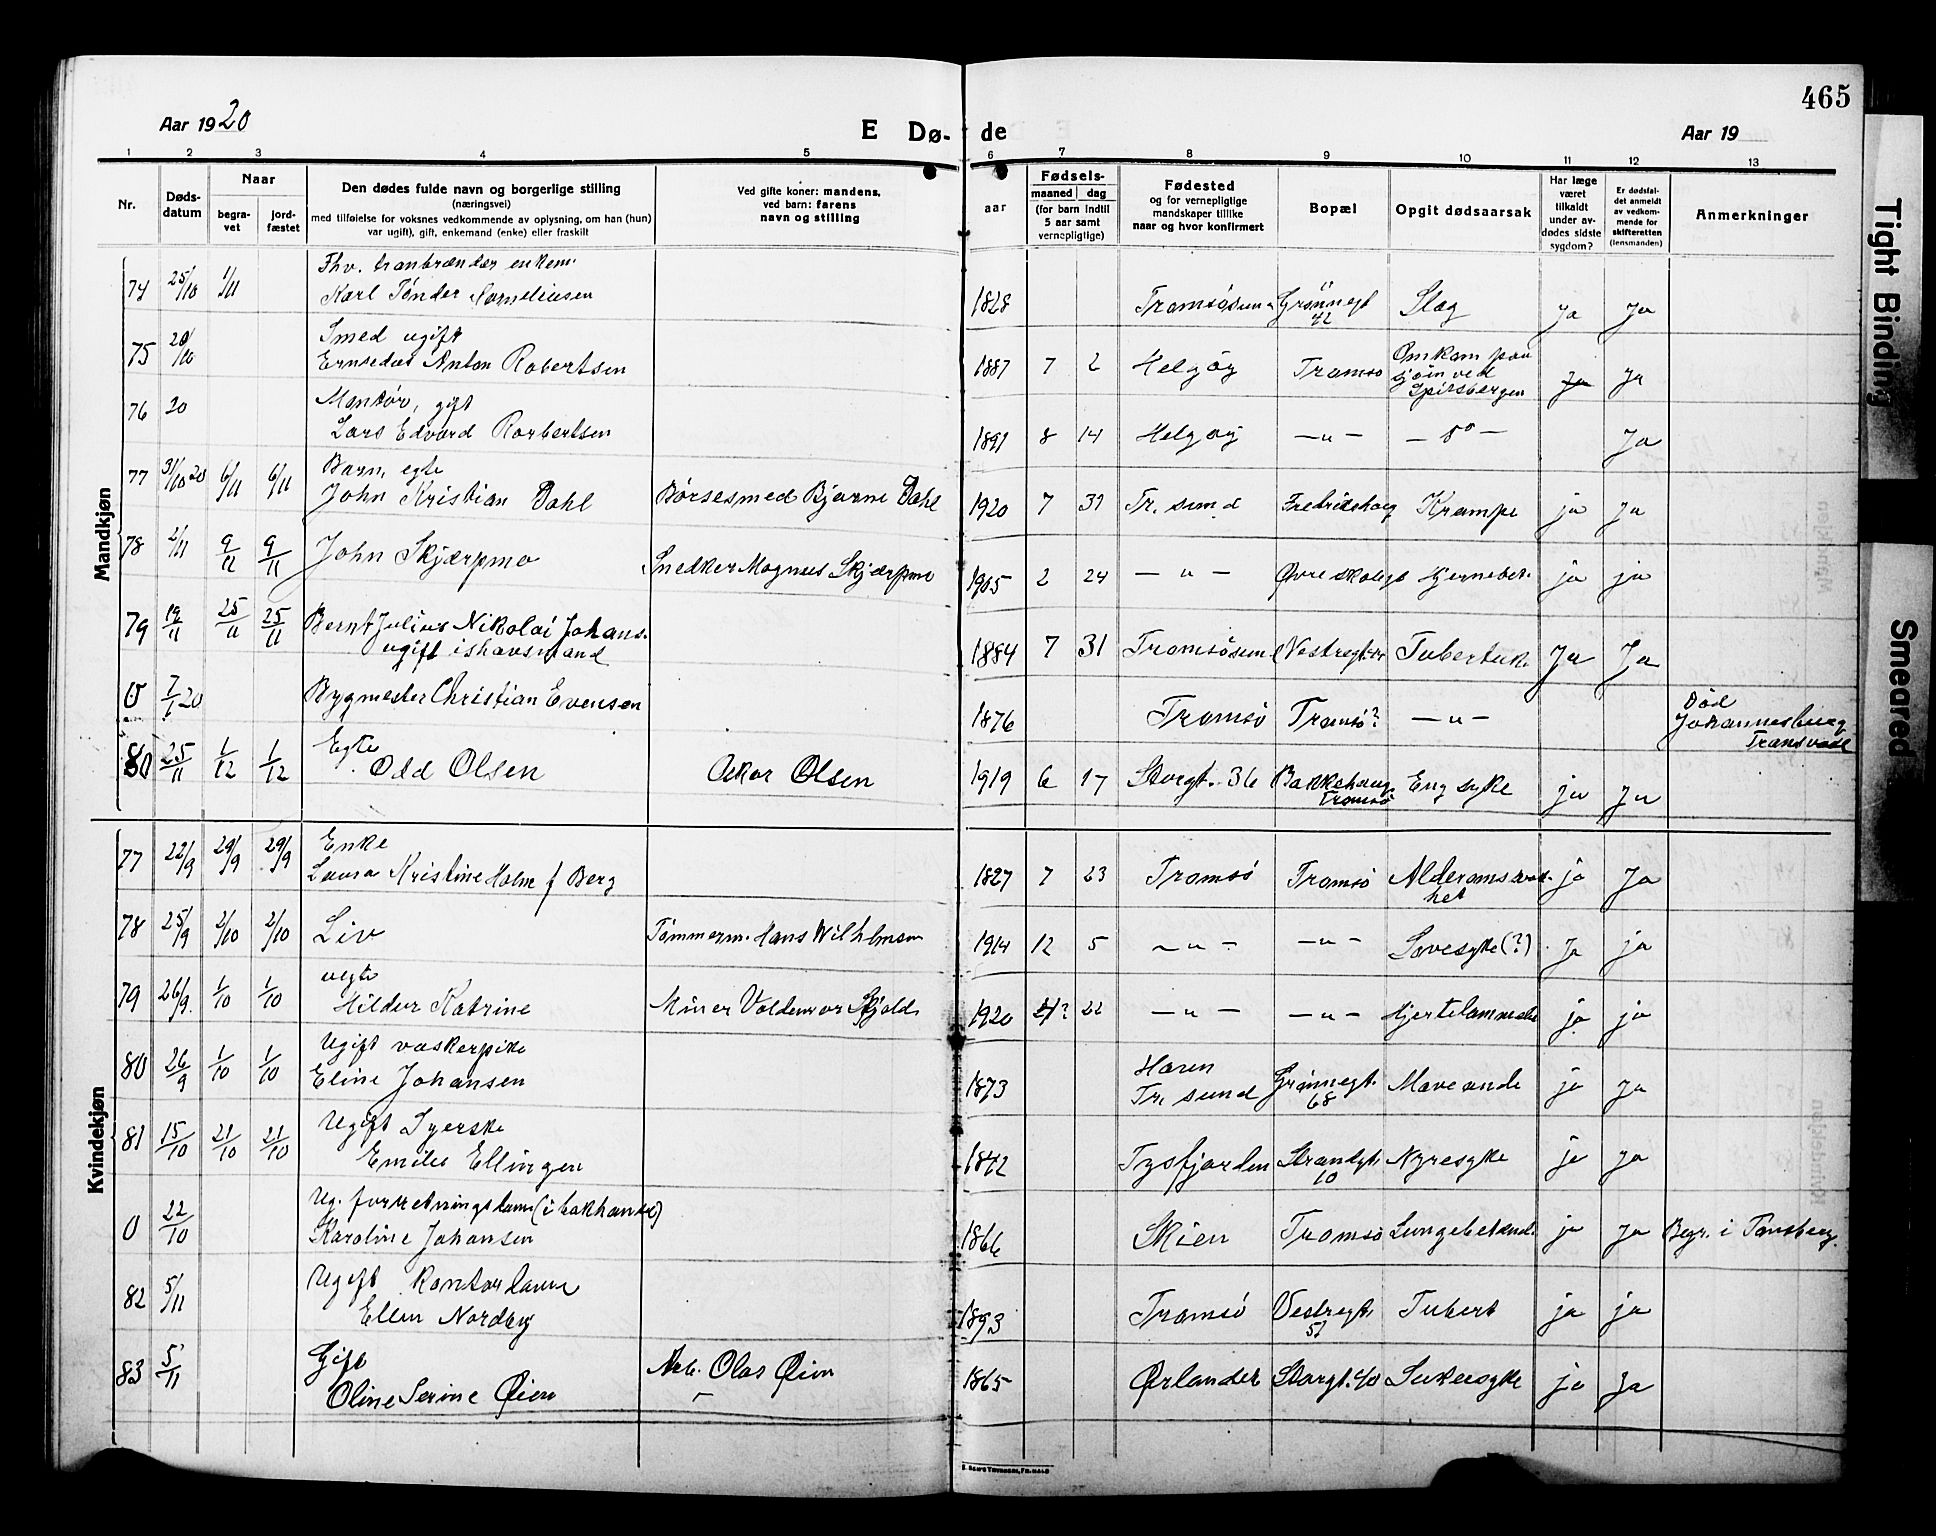 465
Aar 1920
E Dø- de
Aar 19
1 2 3 4 5 6 7 8 9 10 11 12 13
Nr.
Dødsdatum
Naar
begravet
jordfæstet
Den dødes fulde navn og borgerlige stilling
(næringsvei)
med tilføielse for voksnes vedkommende av oplysning, om han (hun)
var ugift), gift, enkemand (enke) eller fraskilt
Ved gifte koner: mandens,
ved barn: farens
navn og stilling
Fødsels-
aar
maaned dag
(for barn indtil
5 aar samt
vernepligtige)
Fødested
og for vernepligtige
mandskaper tillike
naar og hvor konfirmert
Bopæl
Opgit dødsaarsak
Har læge
været
tilkaldt
under av-
dødes sidste
sygdom?
Er dødsfal-
det anmeldt
av vedkom-
mende for
skifteretten
(lensmanden)
Anmerkninger
Mandkjøn
74 25/10 1/11 Fhv. tranbrænder enkem.
Karl Tønder Corneliusen 1828 Tromsøsun Grønnegt 42 Slag Ja Ja
75 20/10 Smed ugift
Anton Robertsen 1887 7 2 Helgøy Tromsø Omkom paa
sjøen ved
Spitsbergen Ja Ja
76 20 Montør, gift
Lars Edvard Rorbertsen 1891 8 14 Helgøy — " — — do — Ja
77 31/10 20 6/11 6/11 Barn, egte
John Kristian Dahl Børsesmed Bjarne Dahl 1920 7 31 Tr. sund Krampe ja Ja
78 2/11 9/11 9/11 John Skjærpmo Snedker Magnus Skjærpmo 1905 2 24 — " — Øvre skolegt Hjernebet. ja ja
79 19/11 25/11 25/11 Bernt Julius Nikolai Johans.
ugift ishavsmand 1884 7 31 Tromsøsun Vestregt. Tuberkuk. Ja Ja
0 7/1 20 Bygmester Christian Evensen 1876 Tromsø Tromsø? — " — Død
Johannesburg
Transvaal
80 25/11 1/12 1/12 Egte
Odd Olsen Oskar Olsen 1919 6 17 Storgt. 36 Bakkehaug.
Tromsø Eng syke ja Ja
Kvindekjøn
77 22/9 29/9 29/9 Enke
Laura Kristine Holm f Berg 1827 7 23 Tromsø Tromsø Alderdomssvak-
het ja Ja
78 25/9 2/10 2/10 Liv Tømmerm. Hans Wilhelmsen 1914 12 5 — " — — " — Sovesyke(?) Ja ja
79 26/9 1/10 1/10 uegte
Hildur Katrine Miner Voldemar Skjold 1920 4? 22 — " — — " — Hjertelammelse ja ja
80 26/9 1/10 1/10 Ugift vaskerpike
Eline Johansen 1873 Haren
Tr. sund Grønnegt.
68 Maveonde ja Ja
81 15/10 21/10 21/10 Ugift Syerske
Emilie Ellingen 1842 Tysfjorden Strandgt.
10 Nyresyke ja Ja
0 22/10 Ug. forretningsdame (i bokhandel)
Karoline Johansen 1866 Skien Tromsø Lungebetænd. ja Ja Begr. i Tønsberg.
82 5/11 Ugift Kontordame
Ellen Nordby 1893 Tromsø Vestregt.
51 Tuberk ja ja
83 5/11 Gift
Oline Serine Øien Arb. Olas Øien 1865 Ørlandet Storgt. 40 Sukersyke ja Ja
Tight Binding
Smeared